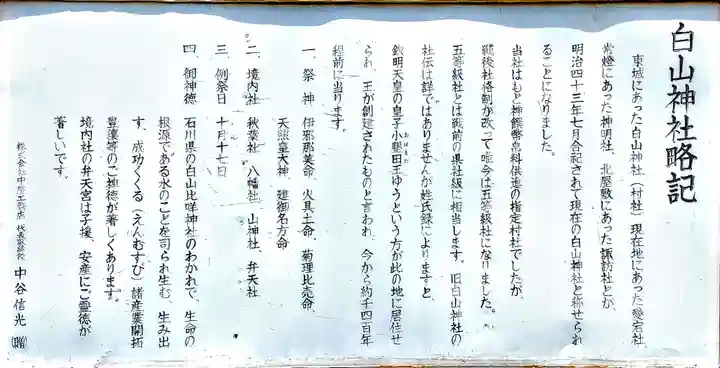 白山神社略記
東城にあった白山神社(村社)現在地にあった愛宕社、
常燈にあった神明社、北屋敷にあった諏訪社とが、
明治四十三年七月合祀されて現在の白山神社と称せられ
ることになりました。
当社はもと神饌幣帛料供進の指定村社でしたが、
戦後社格制が改って唯今は五等級社になりました。
五等級社とは戦前の県社級に相当します。旧白山神社の
社伝は詳ではありませんが姓氏録によりますと、
欽明天皇の皇子小墾田王ゆうという方が此の地に居住せ
られ、王が創建されたものと言われ、今から約千四百年
程前に当ります。
一、祭神 伊邪那美命 火具土命、菊理比売命、
天照皇大神 建御名方命
二、境内社 秋葉社、八幡社、山神社、弁天社
三、例祭日 十月十七日
四、御神徳 石川県の白山比咩神社のわかれで、生命の
根源である水のことを司られ生む、生み出
す、成功くくる(えんむすび)諸産業開拓
豊穣等のご神徳が著しくあります。
境内社の弁天宮は子授、安産にご霊徳が
著しいです。
株式会社中谷工務店 代表取締役 中谷信光(贈)